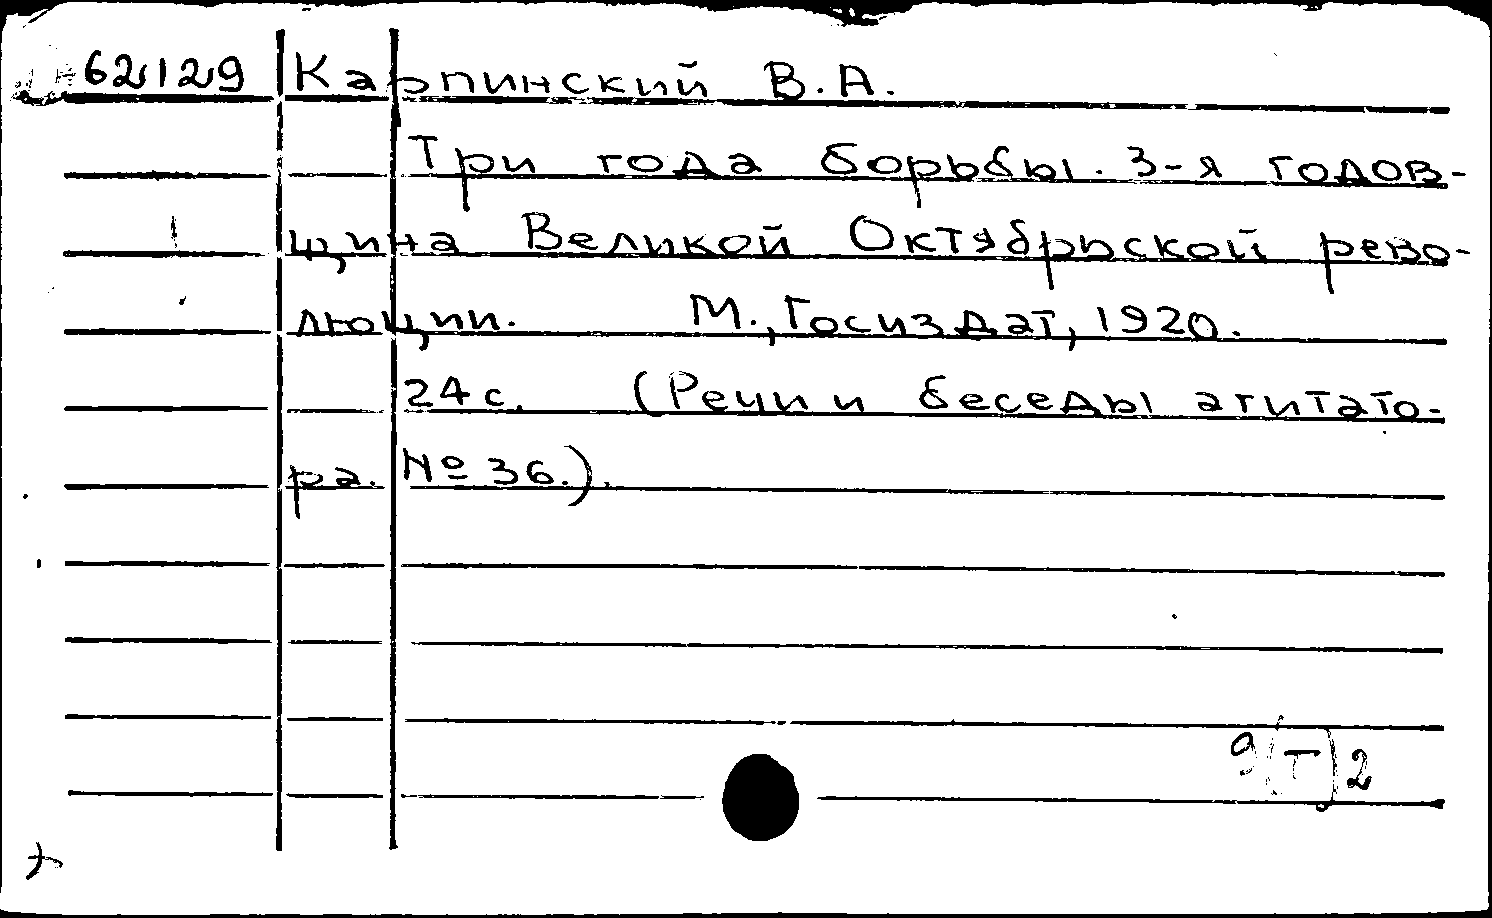 62129 Карпинский В.А.
Три года борьбы. 3-я годов-
щина Великой Октябрьской рево-
люции. М., Госиздат, 1920.
24 с. (Речи и беседы агитато-
ра. № 36.).
9(Т)2